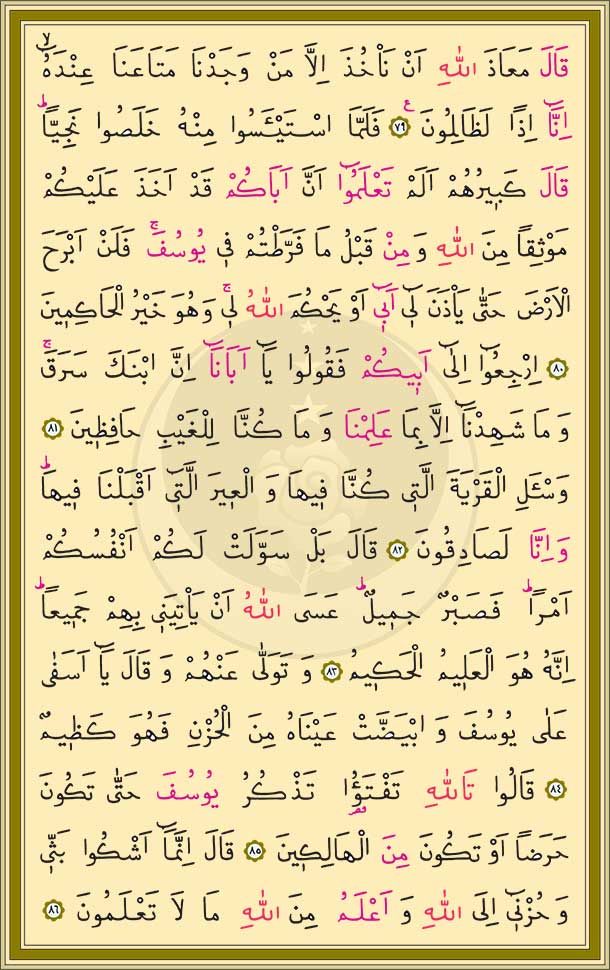 قَالَ مَعَاذَ اللّٰهِ اَنْ نَأْخُذَ اِلَّا مَنْ وَجَدْنَا مَتَاعَنَا عِنْدَهُٓۙ
اِنَّٓا اِذًا لَظَالِمُونَ ﴿٧٩﴾ فَلَمَّا اسْتَيْـَٔسُوا مِنْهُ خَلَصُوا نَجِيًّاۜ
قَالَ كَبِيرُهُمْ اَلَمْ تَعْلَمُٓوا اَنَّ اَبَاكُمْ قَدْ اَخَذَ عَلَيْكُمْ
مَوْثِقًا مِنَ اللّٰهِ وَمِنْ قَبْلُ مَا فَرَّطْتُمْ فِي يُوسُفَۚ فَلَنْ اَبْرَحَ
الْاَرْضَ حَتّٰى يَأْذَنَ لِٓي اَبِٓي اَوْ يَحْكُمَ اللّٰهُ لِيۚ وَهُوَ خَيْرُ الْحَاكِمِينَ
﴿٨٠﴾ اِرْجِعُٓوا اِلٰٓى اَبِيكُمْ فَقُولُوا يَٓا اَبَانَٓا اِنَّ ابْنَكَ سَرَقَۚ
وَمَا شَهِدْنَٓا اِلَّا بِمَا عَلِمْنَا وَمَا كُنَّا لِلْغَيْبِ حَافِظِينَ ﴿٨١﴾
وَسْـَٔلِ الْقَرْيَةَ الَّتِي كُنَّا فِيهَا وَالْعِيرَ الَّتِٓي اَقْبَلْنَا فِيهَاۜ
وَاِنَّا لَصَادِقُونَ ﴿٨٢﴾ قَالَ بَلْ سَوَّلَتْ لَكُمْ اَنْفُسُكُمْ
اَمْرًاۜ فَصَبْرٌ جَمِيلٌۜ عَسَى اللّٰهُ اَنْ يَأْتِيَنِي بِهِمْ جَمِيعًاۜ
اِنَّهُ هُوَ الْعَلِيمُ الْحَكِيمُ ﴿٨٣﴾ وَتَوَلّٰى عَنْهُمْ وَقَالَ يَٓا اَسَفٰى
عَلٰى يُوسُفَ وَابْيَضَّتْ عَيْنَاهُ مِنَ الْحُزْنِ فَهُوَ كَظِيمٌ
﴿٨٤﴾ قَالُوا تَاللّٰهِ تَفْتَؤُ۬ا تَذْكُرُ يُوسُفَ حَتّٰى تَكُونَ
حَرَضًا اَوْ تَكُونَ مِنَ الْهَالِكِينَ ﴿٨٥﴾ قَالَ اِنَّمَٓا اَشْكُوا بَثِّي
وَحُزْنِٓي اِلَى اللّٰهِ وَاَعْلَمُ مِنَ اللّٰهِ مَا لَا تَعْلَمُونَ ﴿٨٦﴾